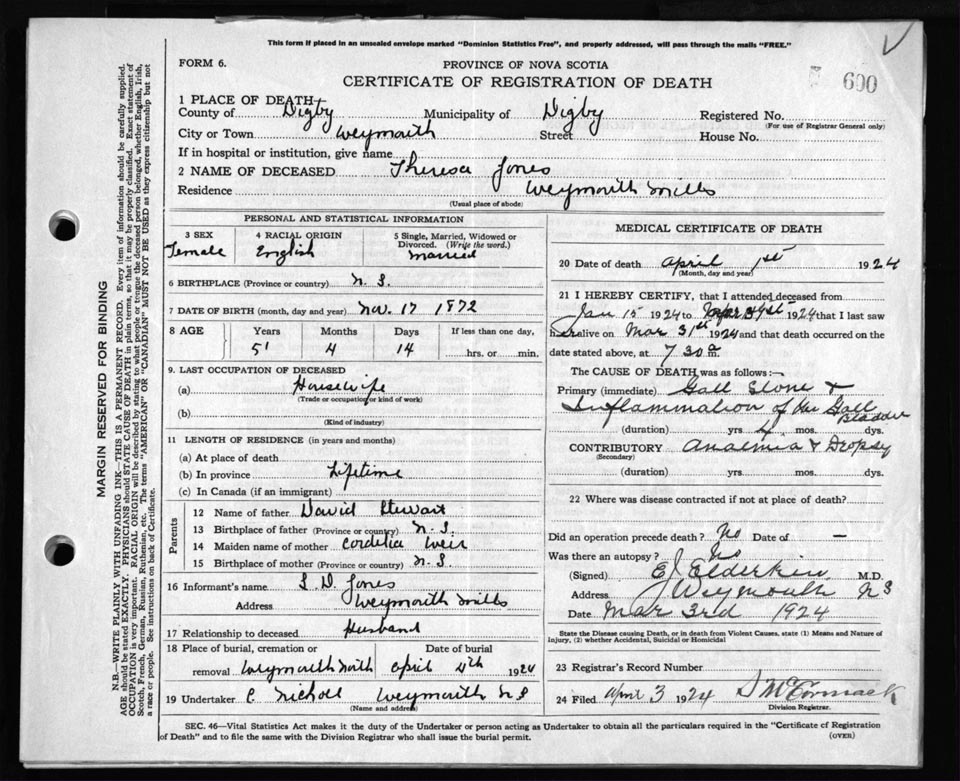 This form if placed in an unsealed envelope marked "Dominion Statistics Free", and properly addressed, will pass through the mails "FREE."
FORM 6.
PROVINCE OF NOVA SCOTIA
600
CERTIFICATE OF REGISTRATION OF DEATH
1 PLACE OF DEATH
County of Digby Municipality of Digby Registered No.
(For use of Registrar General only)
City or Town Weymouth Street House No.
If in hospital or institution, give name
2 NAME OF DECEASED Theresa Jones
Residence Weymouth Mills
(Usual place of abode)
PERSONAL AND STATISTICAL INFORMATION
3 SEX 4 RACIAL ORIGIN 5 Single, Married, Widowed or Divorced. (Write the word.)
Female English Married
6 BIRTHPLACE (Province or country) N. S.
7 DATE OF BIRTH (month, day and year) Nov. 17 1872
8 AGE Years Months Days If less than one day,
51 4 14 hrs. or min.
9. LAST OCCUPATION OF DECEASED
(a) Housewife
(Trade or occupation or kind of work)
(b)
(Kind of industry)
11 LENGTH OF RESIDENCE (in years and months)
(a) At place of death
(b) In province Lifetime
(c) In Canada (if an immigrant)
Parents
12 Name of father David Stewart
13 Birthplace of father (Province or country) N. S.
14 Maiden name of mother Cordelia Weir
15 Birthplace of mother (Province or country) N. S.
16 Informant's name S. D. Jones
Address Weymouth Mills
17 Relationship to deceased Husband
18 Place of burial, cremation or Date of burial
removal Weymouth North April 4th 1924
19 Undertaker C Nichols Weymouth N S
(Name and address)
MEDICAL CERTIFICATE OF DEATH
20 Date of death April 1st 1924
(Month, day and year)
21 I HEREBY CERTIFY, that I attended deceased from
Jan 15 1924 to 31st 1924 that I last saw
her alive on Mar 31st 1924 and that death occurred on the
date stated above, at 7 30 a m.
The CAUSE OF DEATH was as follows :—
Primary (immediate) Gall Stone &
Inflammation of the Gall Bladder
(duration) yrs. mos. dys.
CONTRIBUTORY Anaemia & Dropsy
(Secondary)
(duration) yrs. mos. dys.
22 Where was disease contracted if not at place of death?
Did an operation precede death ? No Date of —
Was there an autopsy ? No
(Signed) E J Elderkin M.D.
Address Weymouth N S
Date Mar 3rd 1924
State the Disease causing Death, or in death from Violent Causes, state (1) Means and Nature of Injury, (2) whether Accidental, Suicidal or Homicidal
23 Registrar's Record Number
24 Filed April 3 1924 S McCormack
Division Registrar.
SEC. 46—Vital Statistics Act makes it the duty of the Undertaker or person acting as Undertaker to obtain all the particulars required in the "Certificate of Registration
of Death" and to file the same with the Division Registrar who shall issue the burial permit. (OVER)
MARGIN RESERVED FOR BINDING
N.B.—WRITE PLAINLY WITH UNFADING INK—THIS IS A PERMANENT RECORD. Every item of information should be carefully supplied.
AGE should be stated EXACTLY. PHYSICIANS should STATE CAUSE OF DEATH in plain terms, so that it may be properly classified. Exact statement of
OCCUPATION is very important. RACIAL ORIGIN will be described by stating to what people or tongue the deceased person belonged, whether English, Irish,
Scotch, French, German, Russian, Ruthenian, etc. The terms "AMERICAN" OR "CANADIAN" MUST NOT BE USED as they express citizenship but not
a race or people. See instructions on back of Certificate.